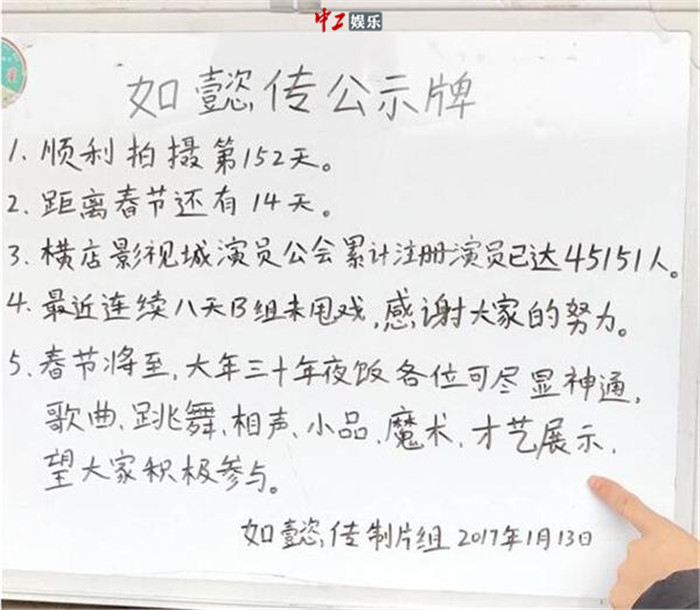 中工娱乐
如懿传公示牌
1. 顺利拍摄第152天。
2. 距离春节还有14天。
3. 横店影视城演员公会累计注册演员已达45151人。
4. 最近连续八天B组未甩戏,感谢大家的努力。
5. 春节将至,大年三十年夜饭各位可尽显神通,
歌曲、跳舞、相声、小品、魔术、才艺展示,
望大家积极参与。
如懿传制片组 2017年1月13日